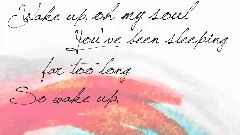 Wake up, oh my soul
You've been sleeping
far too long
So wake up,